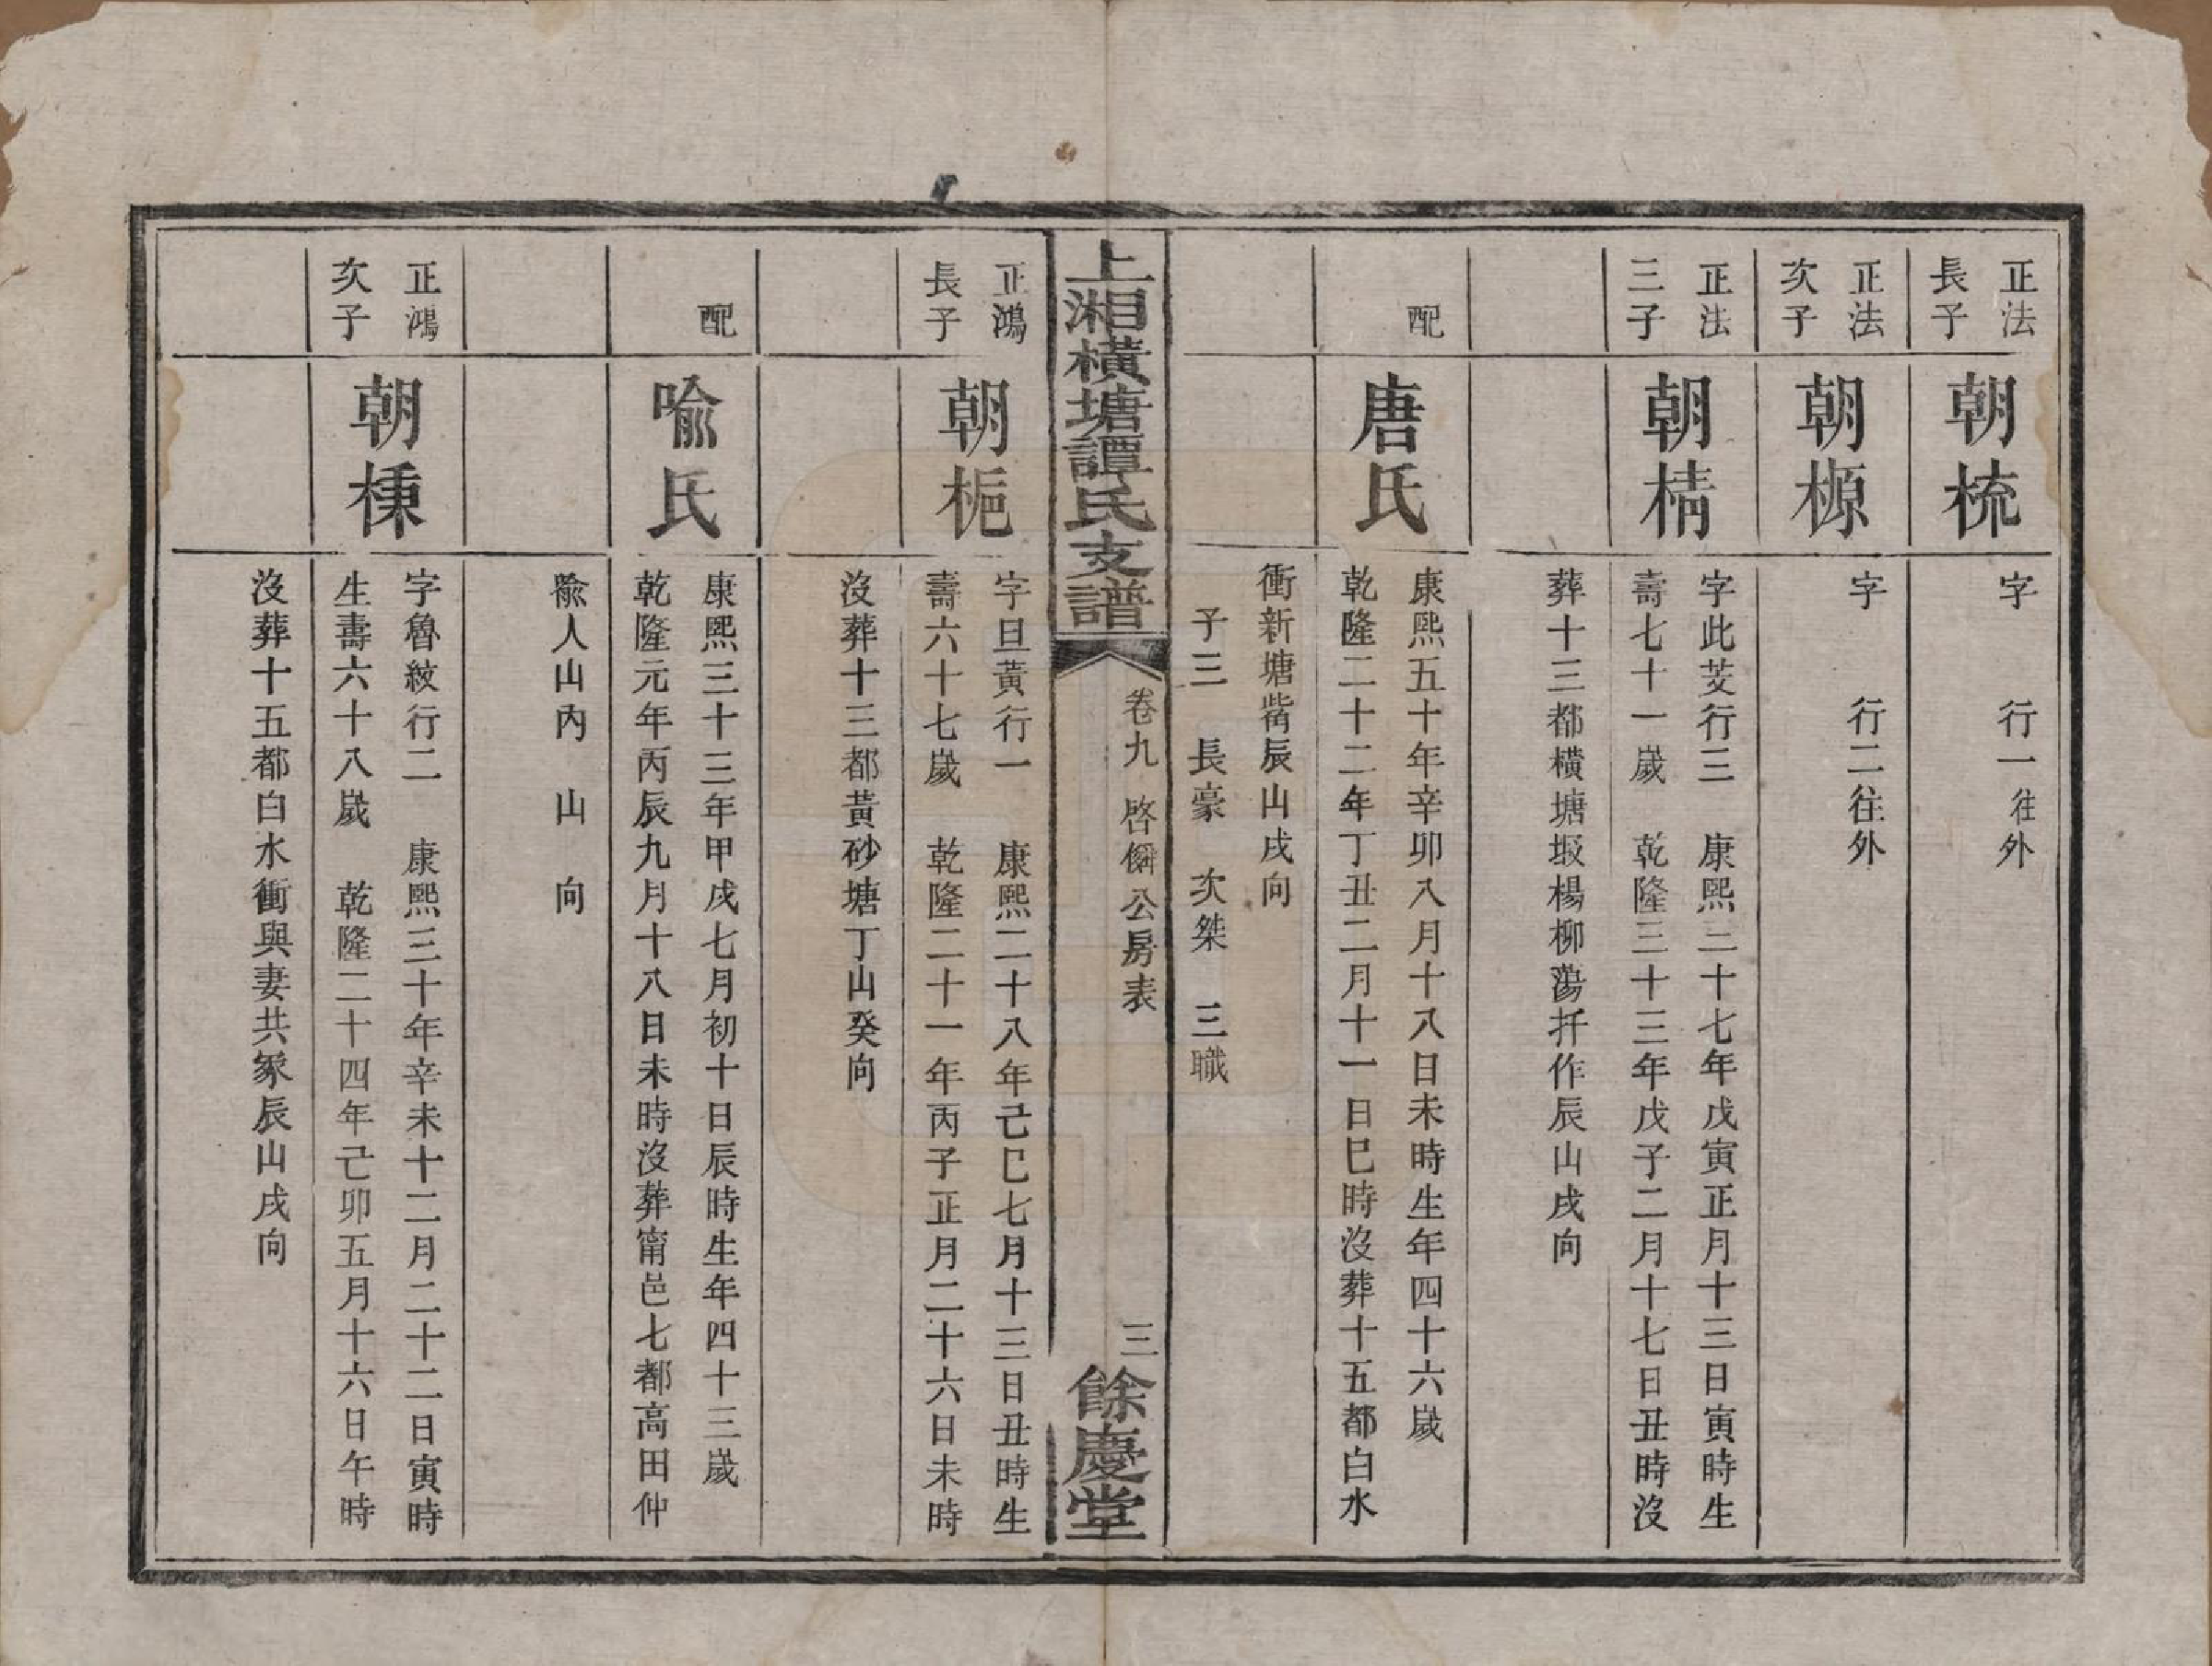 正法
長子
朝梳
字　行一往外
正法
次子
朝榞
字　行二往外
正法
三子
朝棈
字此芠行三　康熙三十七年戊寅正月十三日寅時生
壽七十一歲　乾隆三十三年戊子二月十七日丑時沒
葬十三都橫塘塅楊柳蕩扦作辰山戌向
配
唐氏
康熙五十年辛卯八月十八日未時生年四十六歲
乾隆二十二年丁丑二月十一日巳時沒葬十五都白水
衝新塘觜辰山戌向
子三　長豪　次桀　三職
上湘橫塘譚氏支譜
卷九　啓儕公房表
三
餘慶堂
正鴻
長子
朝栀
字旦黃行一　康熙二十八年己巳七月十三日丑時生
壽六十七歲　乾隆二十一年丙子正月二十六日未時
沒葬十三都黃砂塘丁山癸向
配
喩氏
康熙三十三年甲戌七月初十日辰時生年四十三歲
乾隆元年丙辰九月十八日未時沒葬甯邑七都高田仲
歈人山內　山　向
正鴻
次子
朝㯥
字魯紋行二　康熙三十年辛未十二月二十二日寅時
生壽六十八歲　乾隆二十四年己卯五月十六日午時
沒葬十五都白水衝與妻共冢辰山戌向